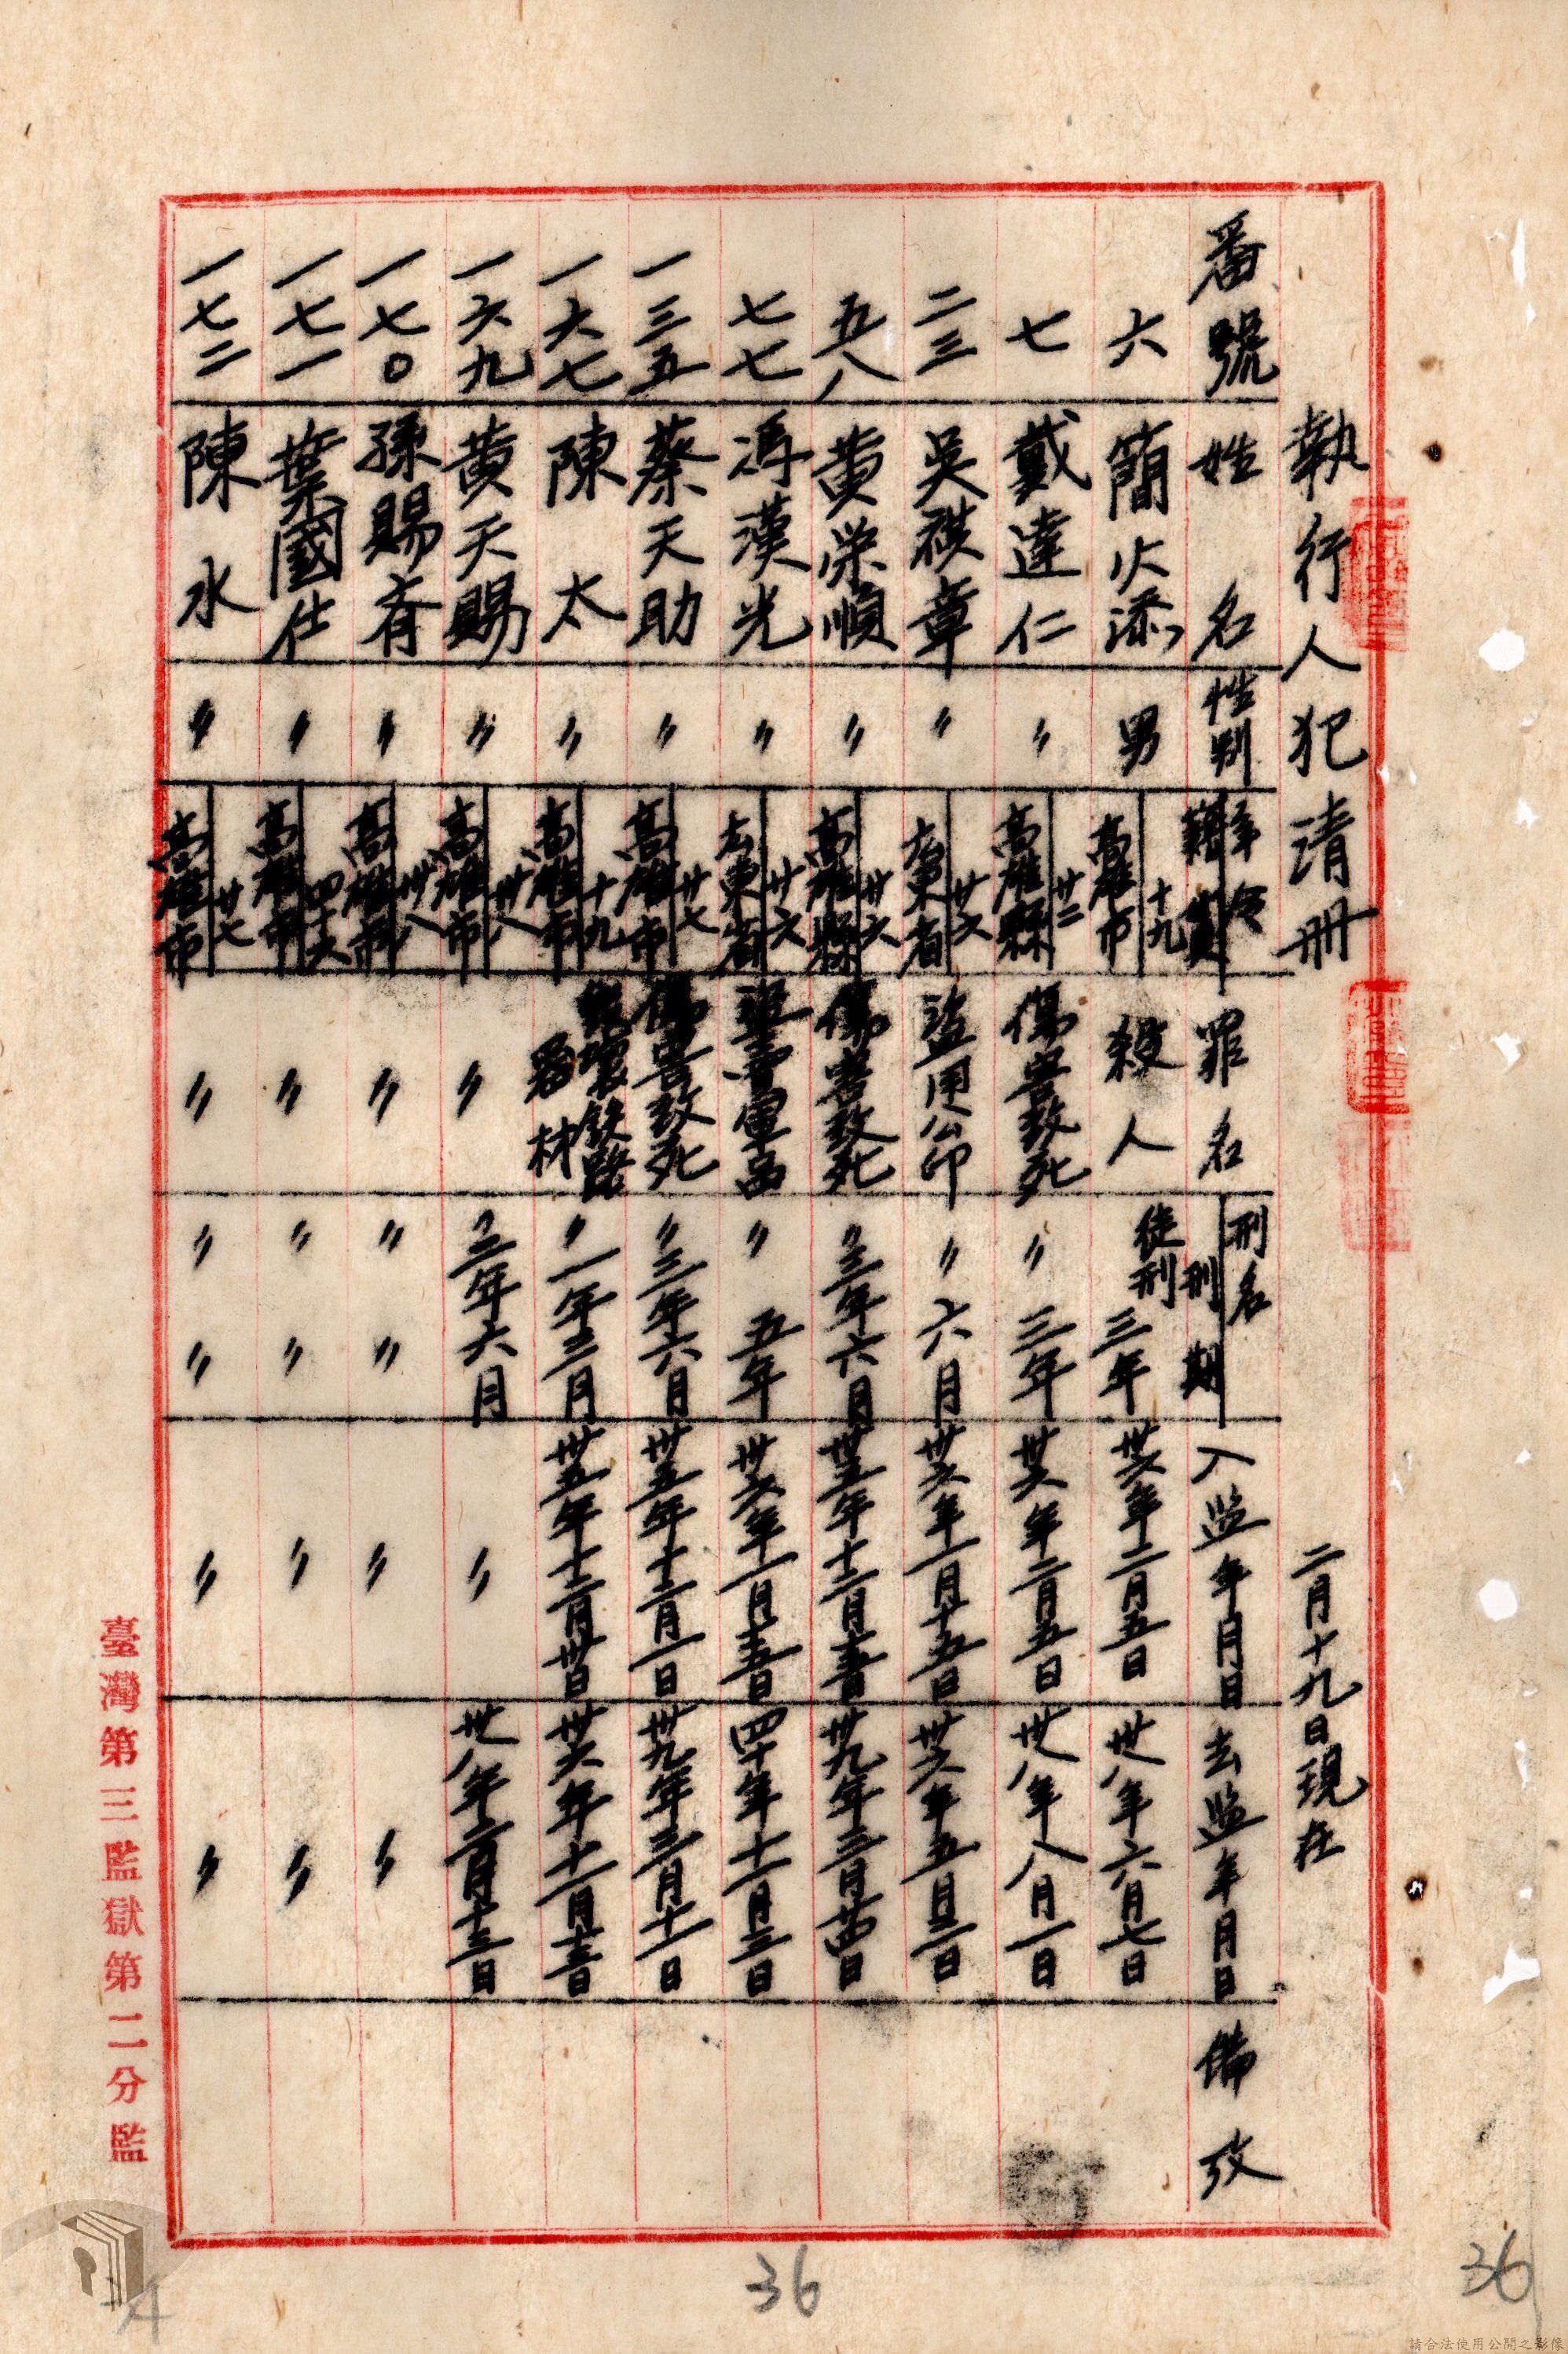 執行人犯清册 二月十九日現在
番號 姓名 性别 年令 籍貫 罪名 刑名 刑期 入監年月日 去監年月日 備攷
六 簡火添 男 十九 高雄市 殺人 徒刑 三年 卅六年二月五日 卅八年六月七日
七 戴達仁 〃 廿二 高雄縣 傷害致死 〃 三年 卅六年二月五日 卅八年八月一日
二三 吳祺章 〃 廿六 廣東省 盜用公印 〃 六月 卅六年一月十五日 卅六年五月三日
五八 黄榮順 〃 廿六 高雄縣 傷害致死 〃 三年六月 卅五年十二月 卅九年三月廿四日
七七 馮漢光 〃 廿六 廣東省 盜賣軍品 〃 五年 卅六年一月十五日 四十年十一月三日
一三五 蔡天助 〃 廿七 高雄市 傷害致死 〃 三年六月 卅五年十二月一日 卅九年三月十一日
一六七 陳太 〃 十九 高雄市 毀壞鉄路器材 〃 一年三月 卅五年十二月卅日 卅六年十一月十三日
一六九 黄天賜 〃 廿八 高雄市 〃 〃 二年六月 〃 卅八年二月十三日
一七0 孫賜有 〃 卅八 高雄市 〃 〃 〃 〃 〃
一七一 葉國仕 〃 四十六 高雄市 〃 〃 〃 〃 〃
一七二 陳水 〃 廿七 高雄市 〃 〃 〃 〃 〃
臺灣第三監獄第二分監
36
36
請合法使用公開之影像